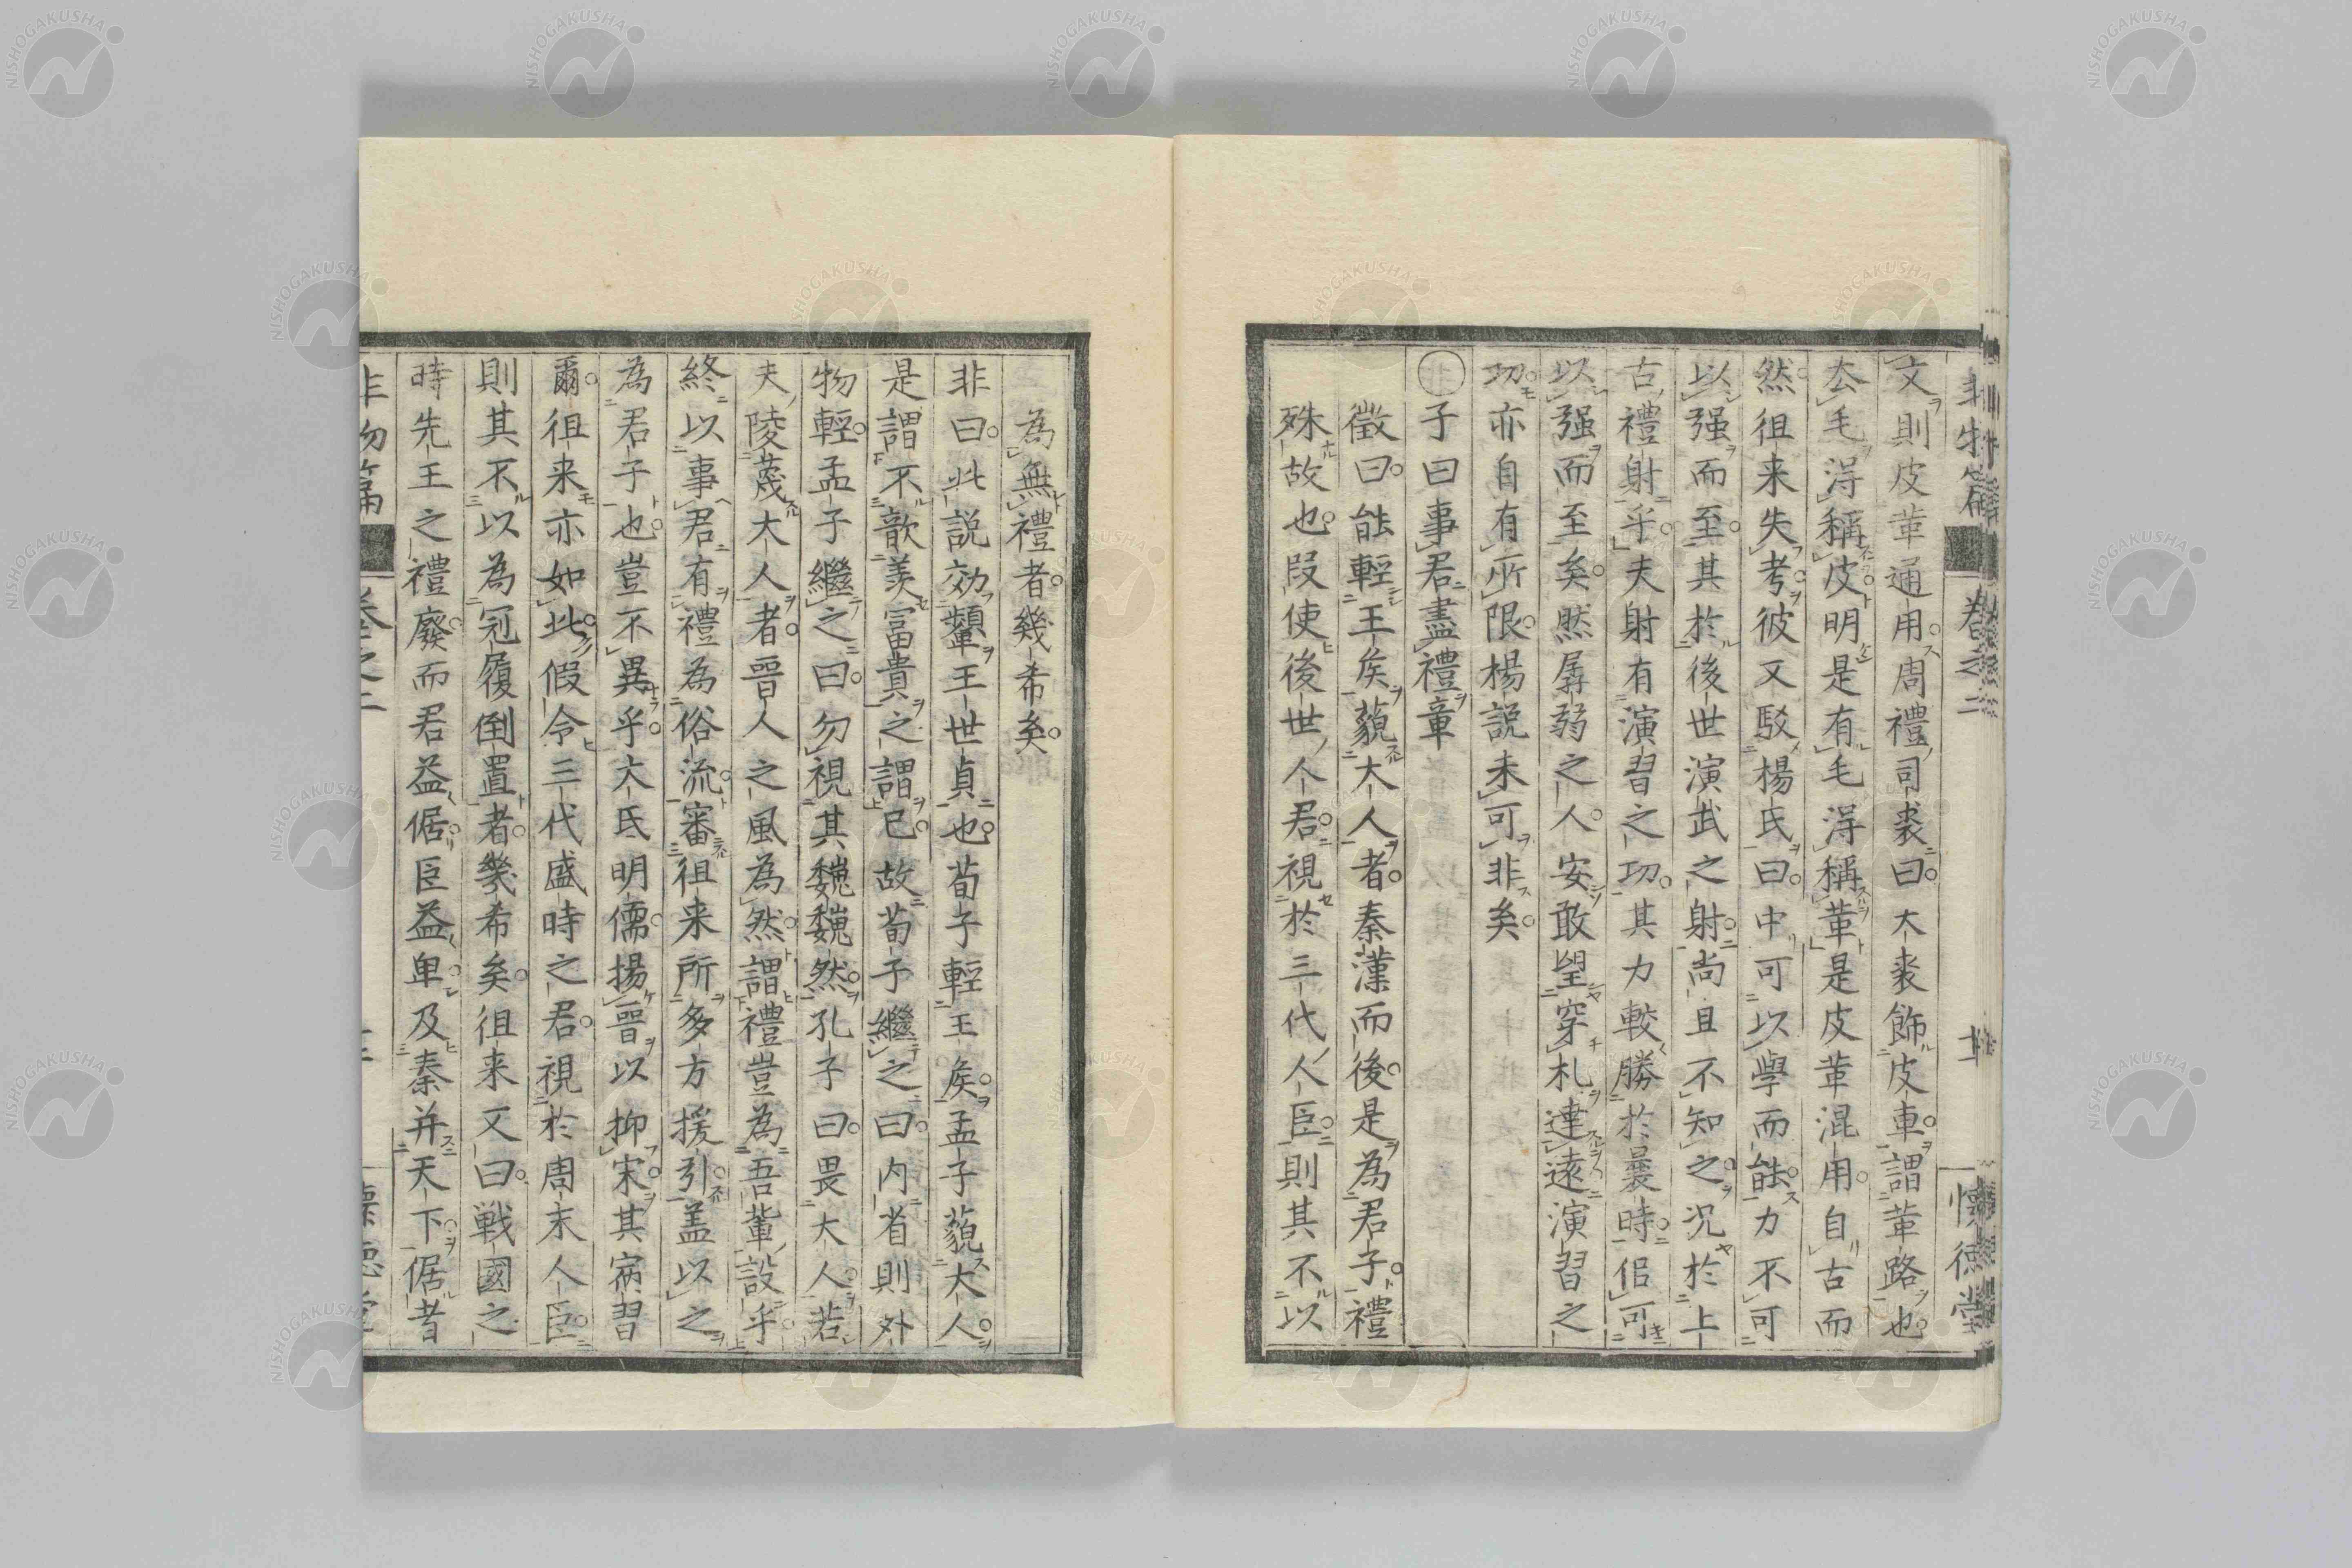 非物篇 卷之二 懷德堂
文則皮革通用周禮司裘曰大裘飾皮車謂革路也
去毛得稱皮明是有毛得稱革是皮革混用自古而
然徂来失考彼又駁楊氏曰中可以學而能力不可
以强而至其於後世演武之射尚且不知之况於上
古禮射乎夫射有演習之功其力較勝於曩時但可
以强而至矣然孱弱之人安敢望穿札達遠演習之
功亦自有所限楊説未可非矣
子曰事君盡禮章
徵曰能輕王矦藐大人者秦漢而後是為君子禮
殊故也叚使後世人君視於三代人臣則其不以
為無禮者幾希矣
非曰此説効顰王世貞也荀子輕王矦孟子藐大人
是謂不歆羨富貴之謂已故荀子繼之曰内省則外
物輕孟子繼之曰勿視其魏魏然孔子曰畏大人若
夫陵蔑大人者晉人之風為然謂禮豈為吾輩設乎
終以事君有禮為俗流審徂来所多方援引盖以之
為君子也豈不異乎大氐明儒揚晉以抑宋其病習
爾徂来亦如此假令三代盛時之君視於周末人臣
則其不以為冠履倒置者幾希矣徂来又曰戦國之
時先王之禮廢而君益倨臣益卑及秦并天下倨者
非物篇 卷之二 懷德堂
NISHOGAKUSHA